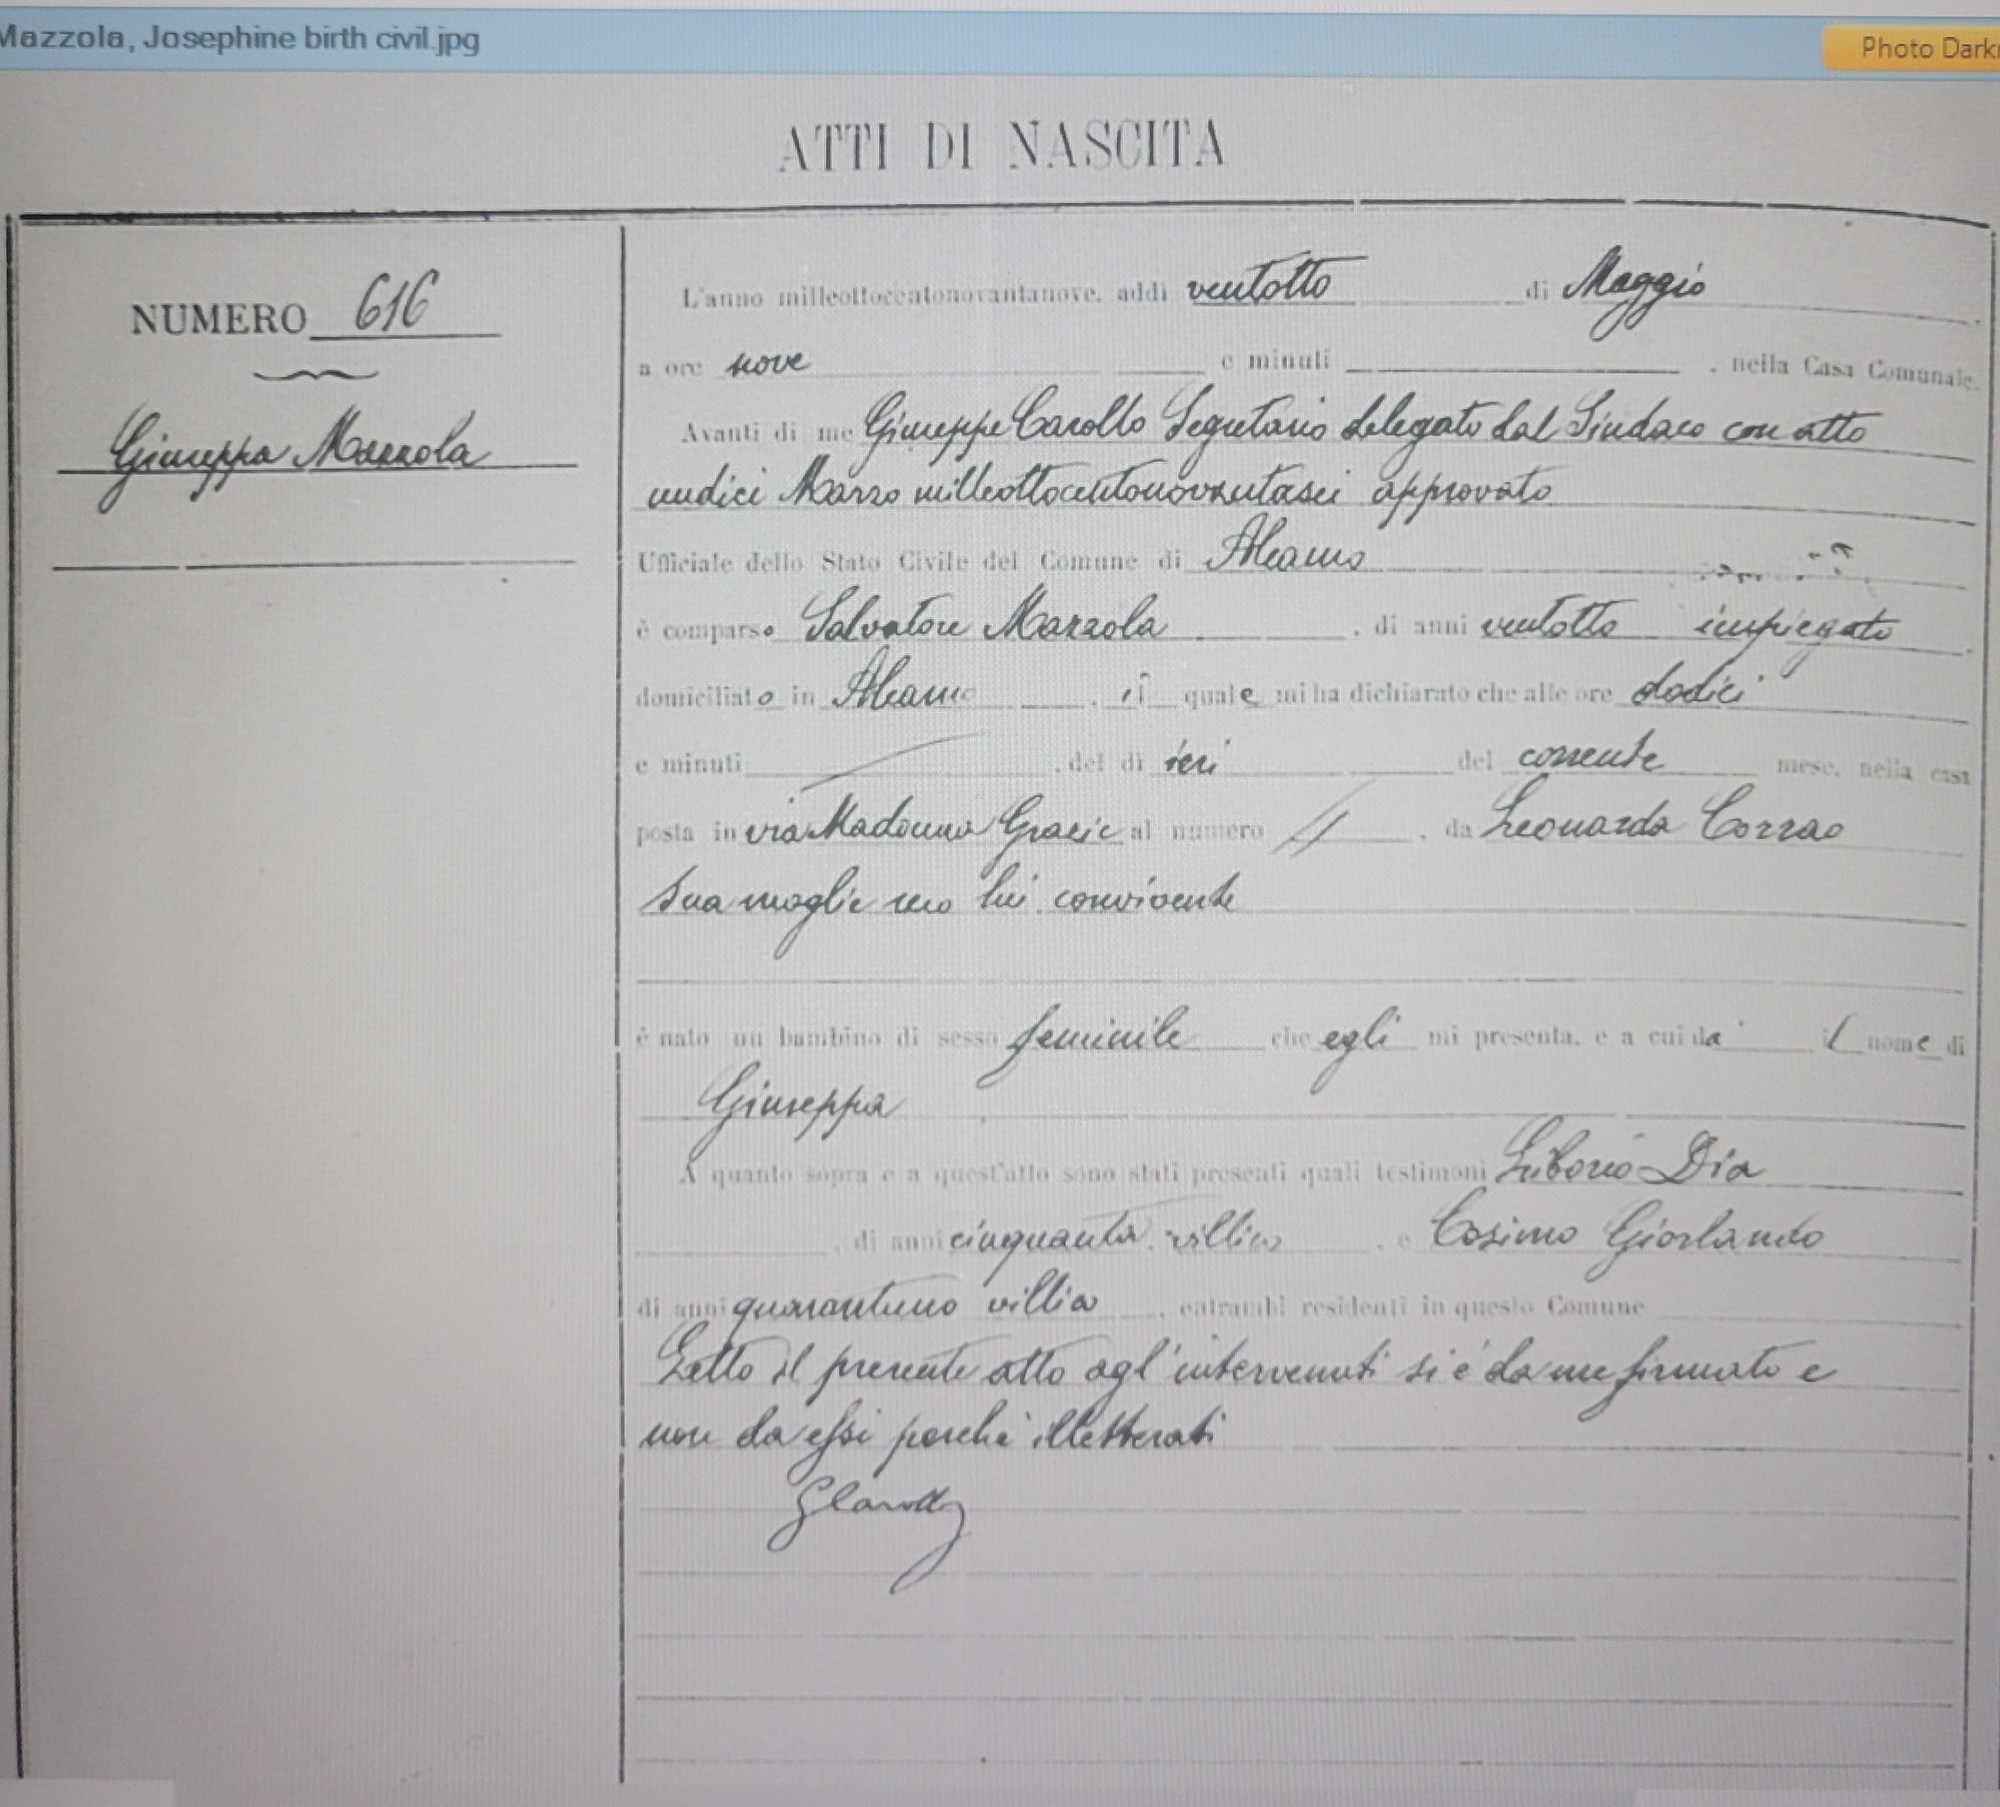 Mazzola, Josephine birth civil.jpg
Photo Dark
ATTI DI NASCITA
NUMERO 616
Giuseppa Mazzola
L'anno milleottocentonovantanove, addì ventotto di Maggio
a ore nove e minuti , nella Casa Comunale.
Avanti di me Giuseppe Carollo Segretario delegato dal Sindaco con atto
undici Marzo milleottocentonovantasei approvato
Ufficiale dello Stato Civile del Comune di Alcamo
è comparso Salvatore Mazzola , di anni ventotto impiegato
domiciliato in Alcamo , il quale mi ha dichiarato che alle ore dodici
e minuti , del dì ieri del corrente mese, nella casa
posta in via Madonna Grazie al numero , da Leonarda Corrao
sua moglie seco lui convivente
è nato un bambino di sesso feminile che egli mi presenta, e a cui da il nome di
Giuseppa
A quanto sopra e a quest'atto sono stati presenti quali testimoni Liborio Dia
, di anni cinquanta, villico , e Cosimo Giorlando
di anni quarantuno villico , entrambi residenti in questo Comune
Letto il presente atto agl'intervenuti si è da me firmato e
non da essi perchè illetterati